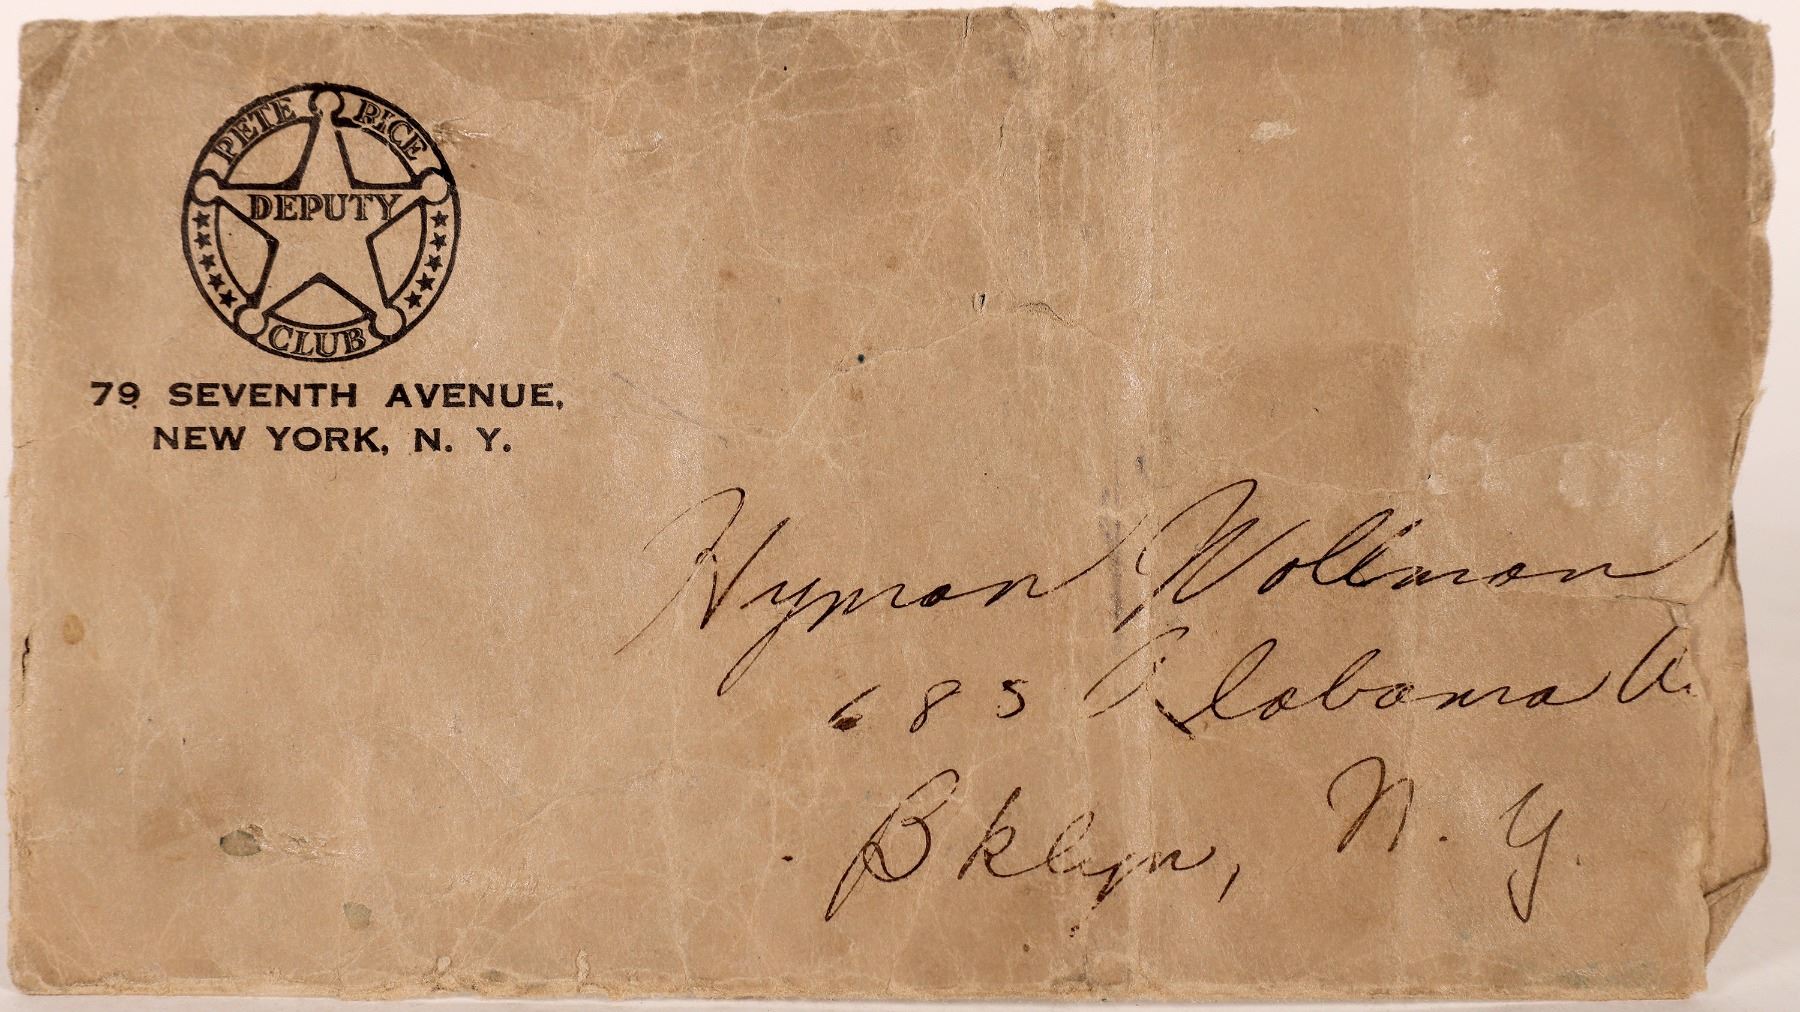 PETE RICE
DEPUTY
CLUB
79 SEVENTH AVENUE,
NEW YORK, N. Y.
Hyman Wollman
685 Alabama A.
Bklyn, N. Y.